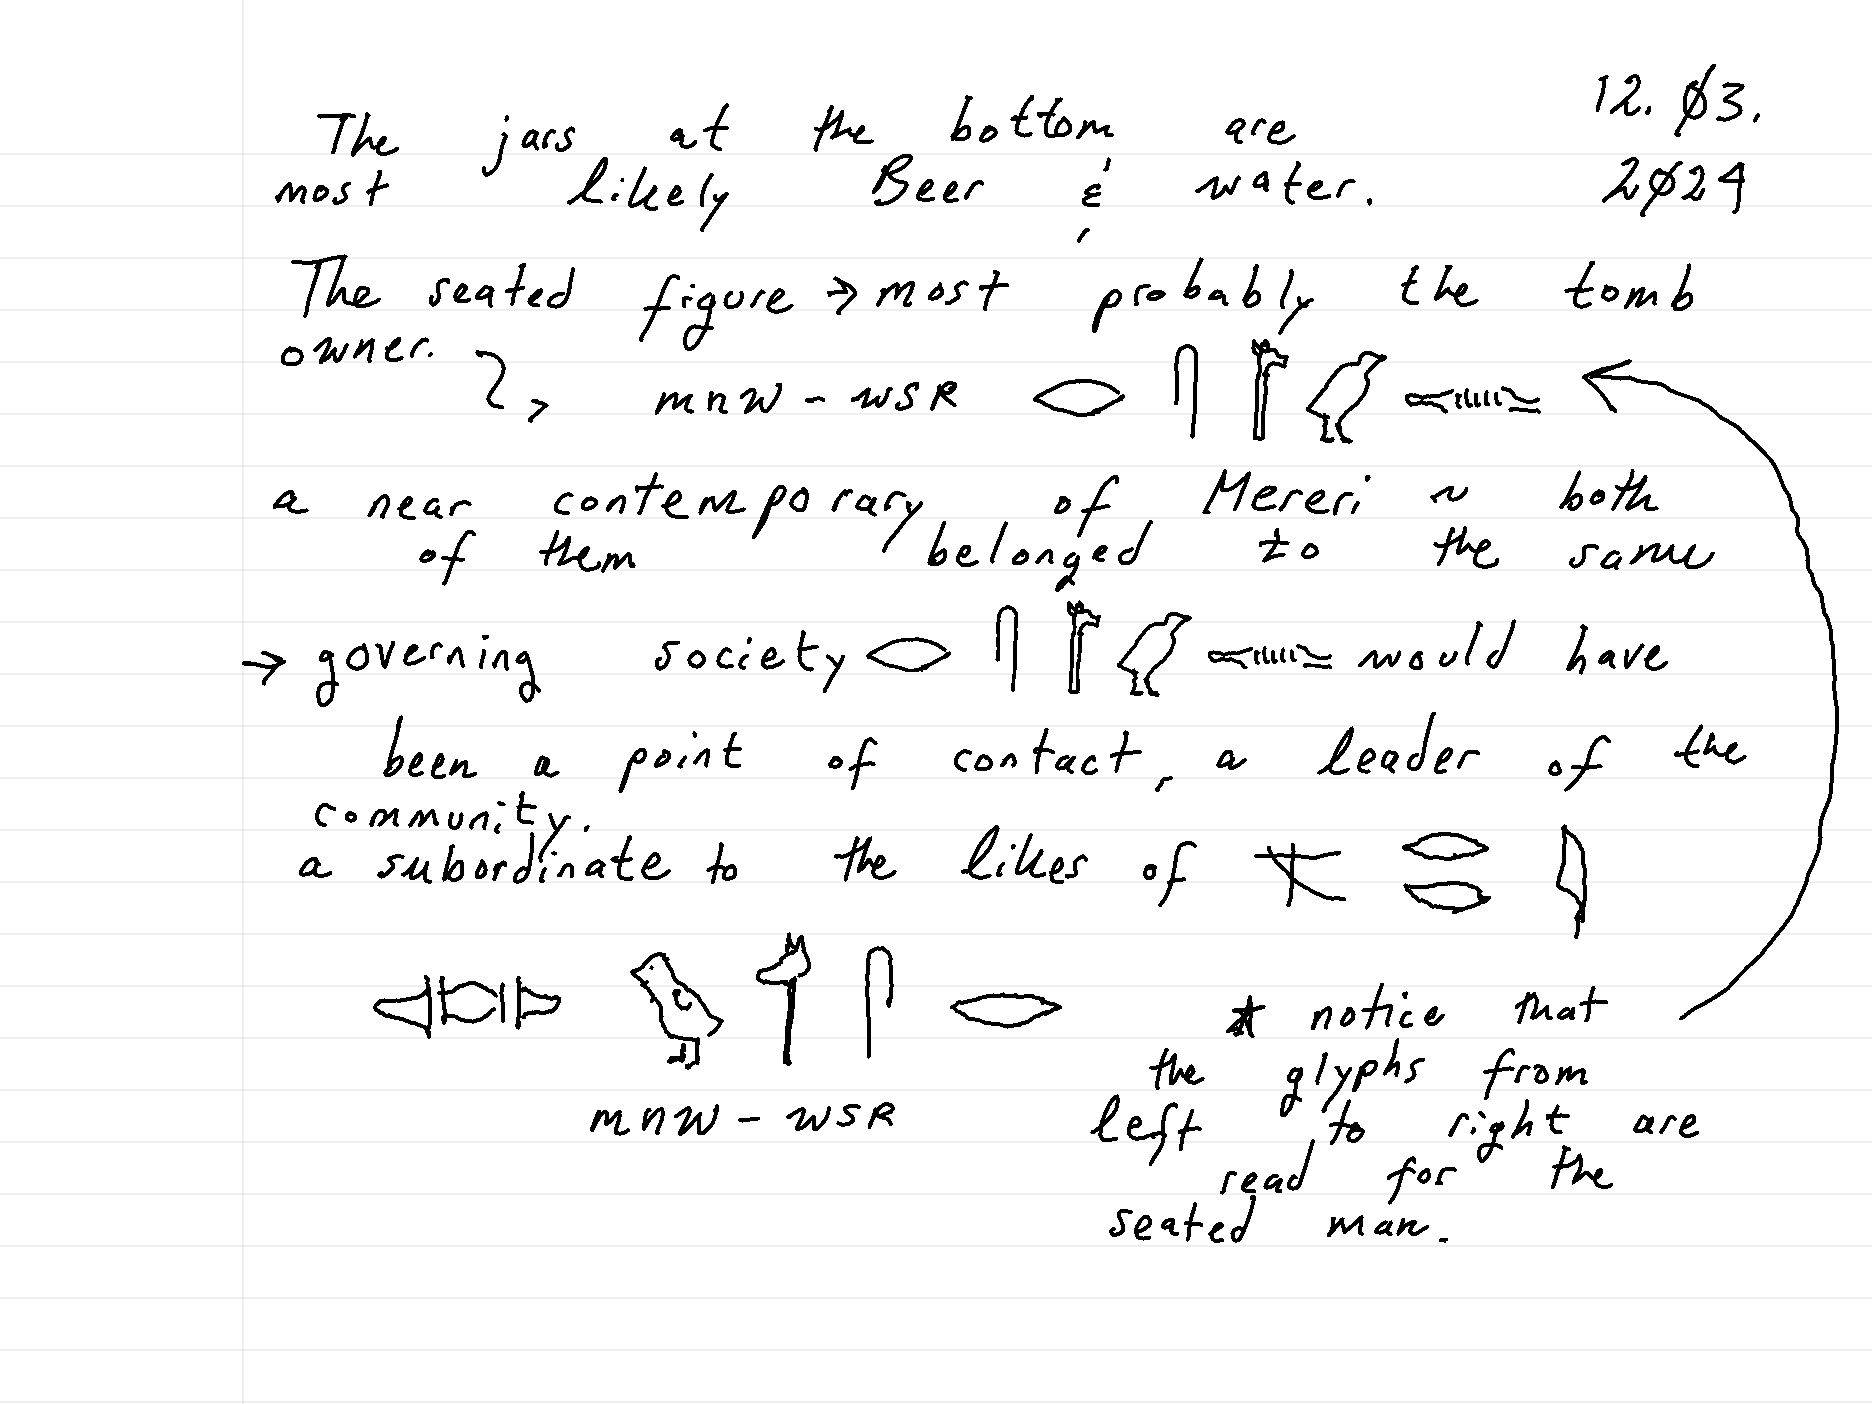 12. Ø3.
2Ø24
The jars at the bottom are
most likely Beer & water.
The seated figure → most probably the tomb
owner.
mnw - wsR 𓂋 𓋴 𓄊 𓅱 𓋊
a near contemporary of Mereri ~ both
of them belonged to the same
→ governing society 𓂋 𓋴 𓄊 𓅱 𓋊 would have
been a point of contact, a leader of the
community.
a subordinate to the likes of 𓌸 𓂋 𓂋 𓇋
𓋊 𓅱 𓄊 𓋴 𓂋
mnw - wsR
* notice that
the glyphs from
left to right are
read for the
seated man.